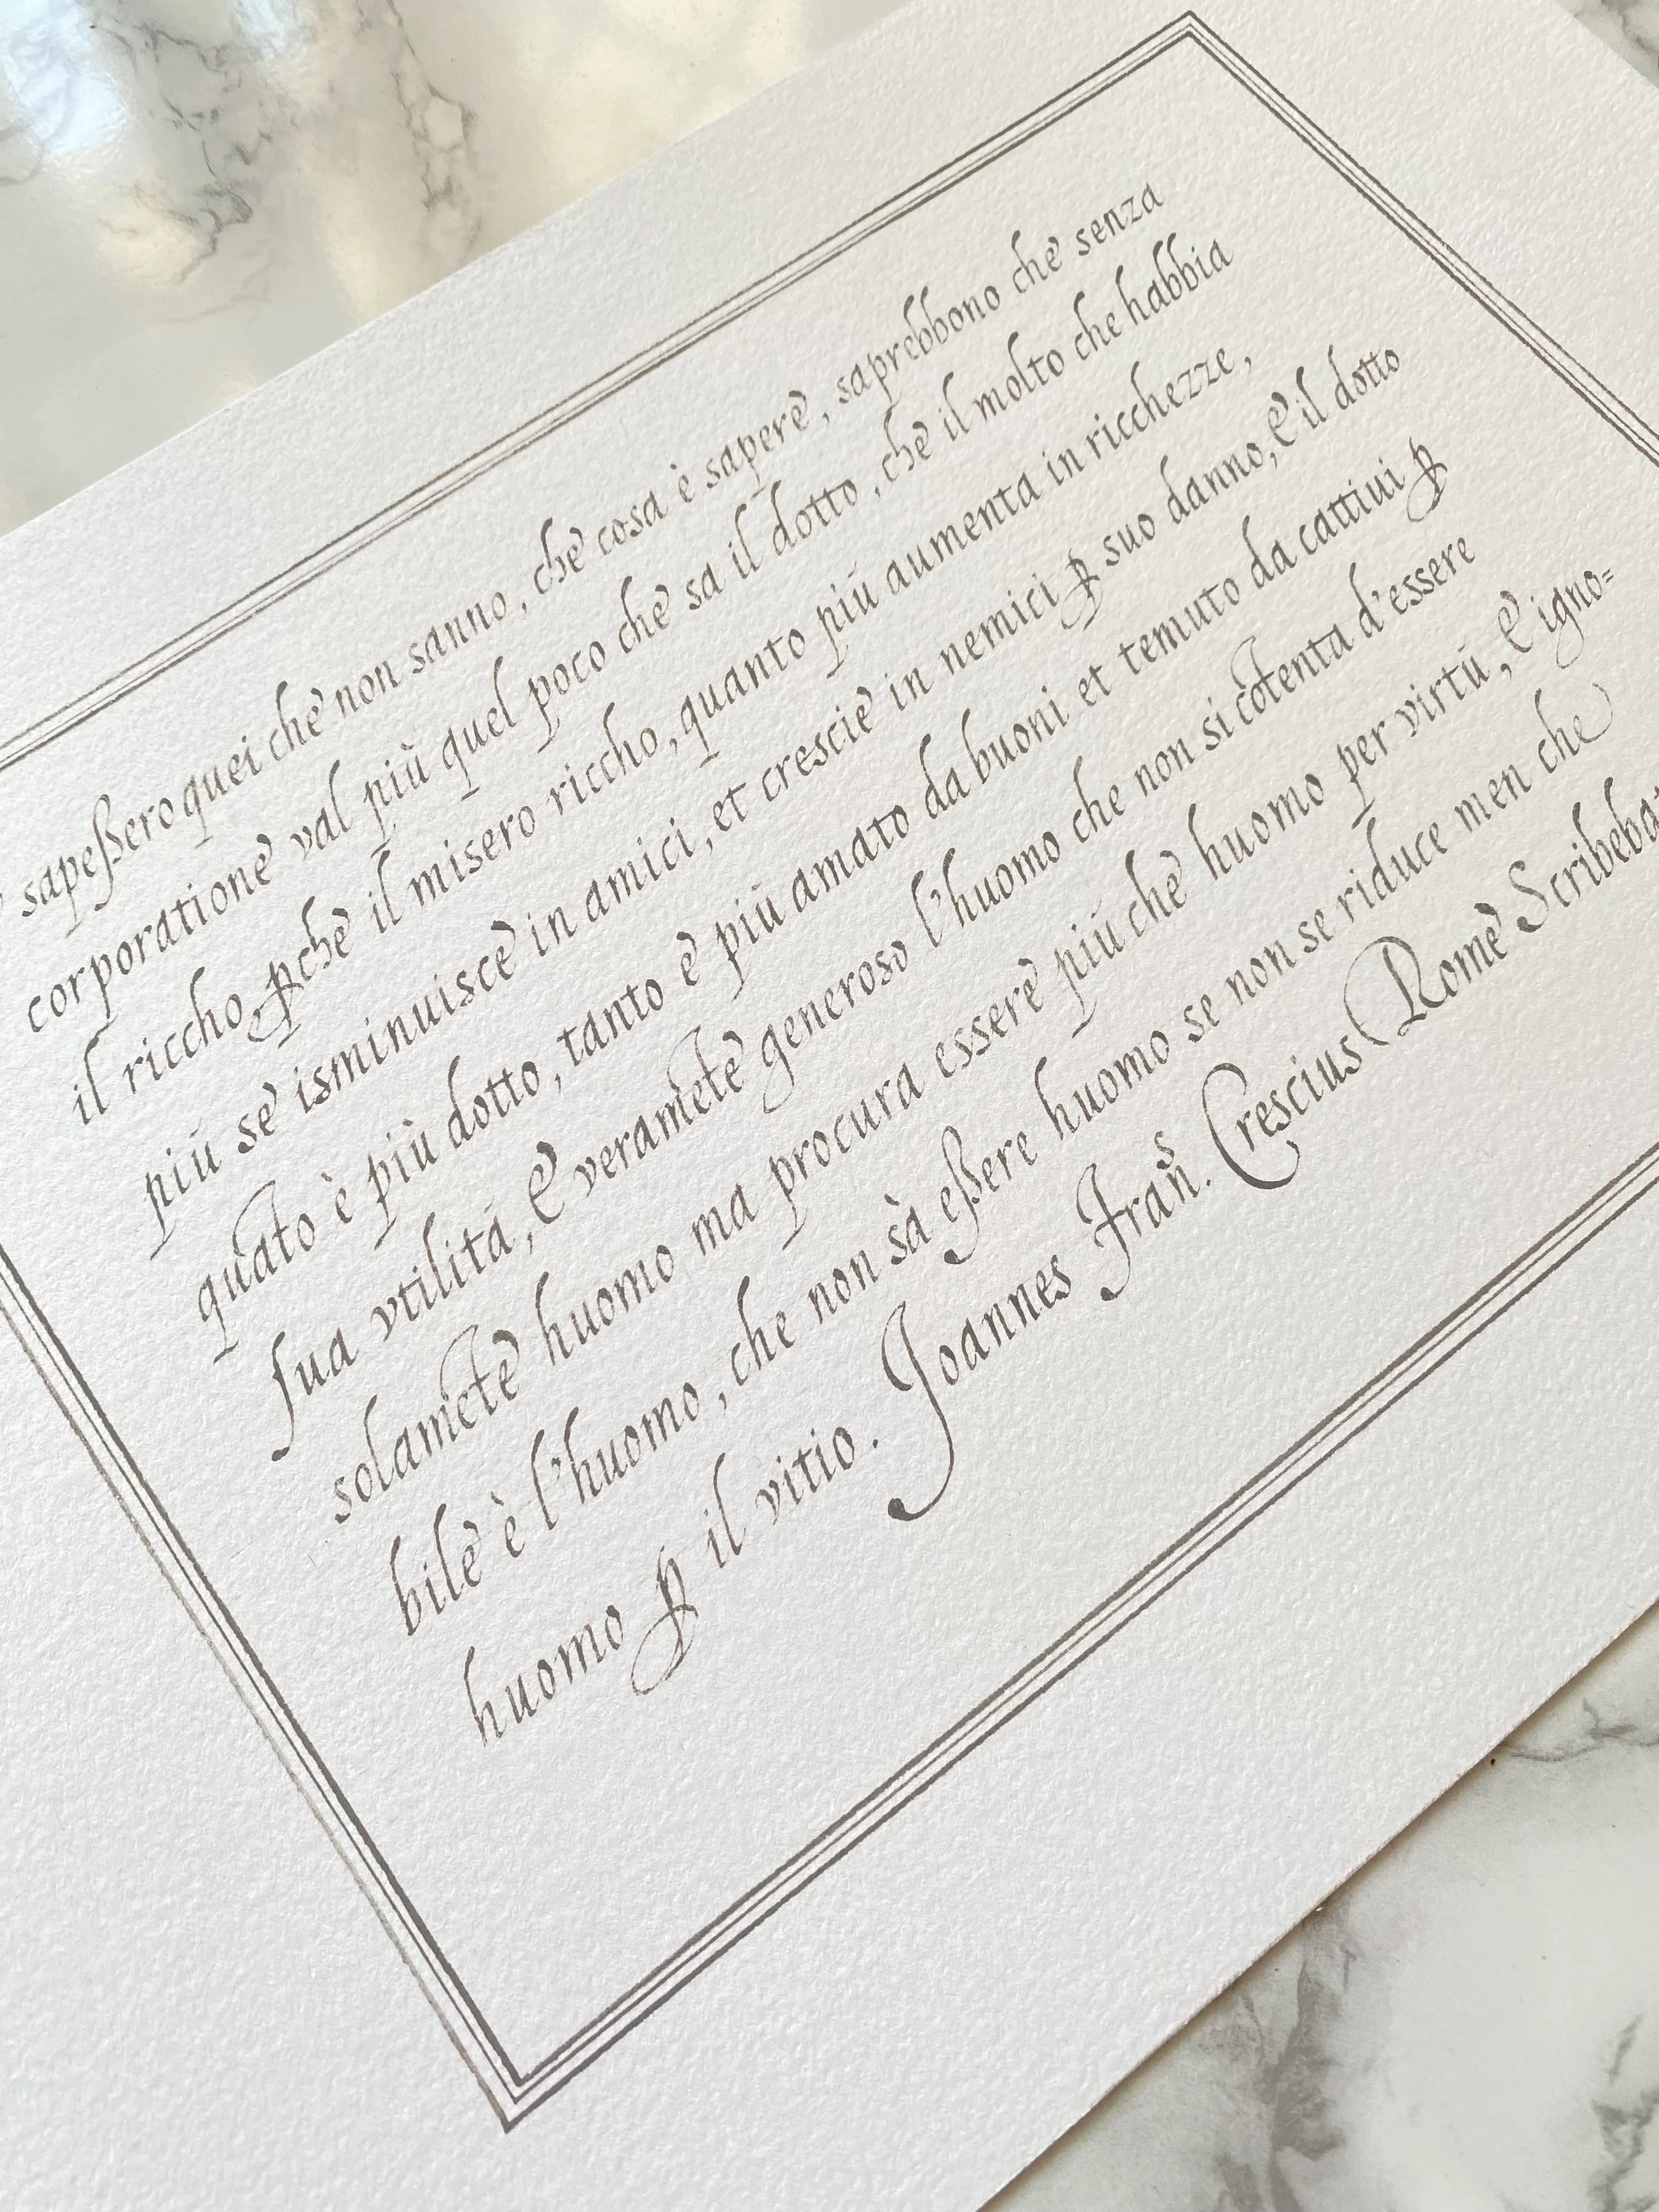 sapeßero quei che non sanno, che cosa è sapere, saprebbono che senza
corporatione val più quel poco che sa il dotto, che il molto che habbia
il riccho, ꝑche il misero riccho, quanto più aumenta in ricchezze,
più se isminuisce in amici, et crescie in nemici ꝑ suo danno, & il dotto
quāto è più dotto, tanto è più amato da buoni et temuto da cattiui ꝑ
ſua vtilità, & veramēte generoso l'huomo che non si cōtenta d'essere
solamēte huomo ma procura essere più che huomo per virtù, & igno=
bile è l'huomo, che non sà eßere huomo se non se riduce men che
huomo ꝑ il vitio. Joannes Franˢ. Crescius Rome Scribebat